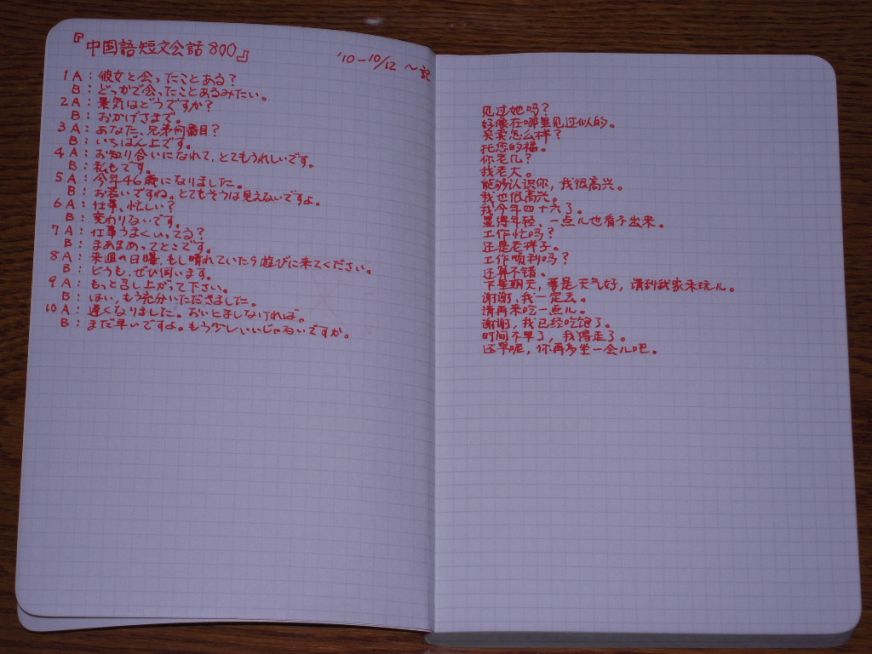 『中国語短文会話800』
'10-10/12 ～記
1 A：彼女と会ったことある？
B：どっかで会ったことあるみたい。
2 A：景気はどうですか？
B：おかげさまで。
3 A：あなた、兄弟何番目？
B：いちばん上です。
4 A：お知り合いになれて、とてもうれしいです。
B：私もです。
5 A：今年46歳になりました。
B：お若いですね。とてもそうは見えないですよ。
6 A：仕事、忙しい？
B：変わりないです。
7 A：仕事うまくいってる？
B：まあまあってとこです。
8 A：来週の日曜、もし晴れていたら遊びに来てください。
B：どうも、ぜひ伺います。
9 A：もっと召し上がって下さい。
B：はい、もう充分いただきました。
10 A：遅くなりました。おいとましなければ。
B：まだ早いですよ。もう少しいいじゃないですか。
见过她吗？
好像在哪里见过似的。
买卖怎么样？
托您的福。
你老几？
我老大。
能够认识你，我很高兴。
我也很高兴。
我今年四十六了。
显得年轻，一点儿也看不出来。
工作忙吗？
还是老样子。
工作顺利吗？
还算不错。
下星期天，要是天气好，请到我家来玩儿。
谢谢，我一定去。
请再来吃一点儿。
谢谢，我已经吃饱了。
时间不早了，我得走了。
还早呢，你再多坐一会儿吧。